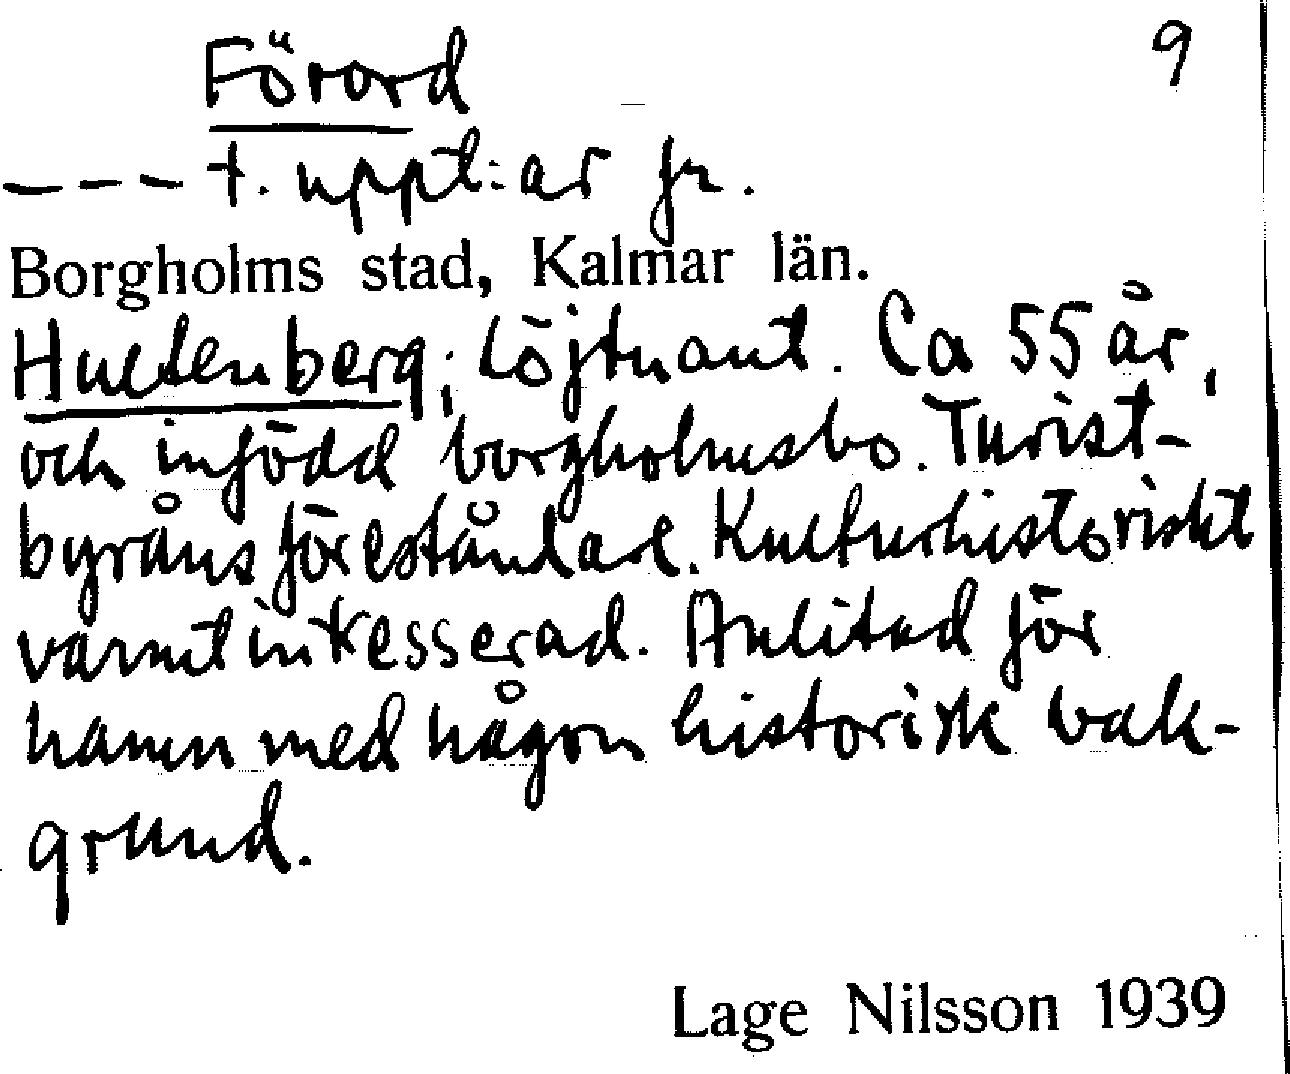 Förord 9
- - - t. uppt:ar fr.
Borgholms stad, Kalmar län.
Hultenberg; Löjtnant. Ca 55 år,
och infödd borgholmsbo. Turist-
byråns föreståndare. Kulturhistoriskt
varmt intresserad. Anlitad för
namn med någon historisk bak-
grund.
Lage Nilsson 1939